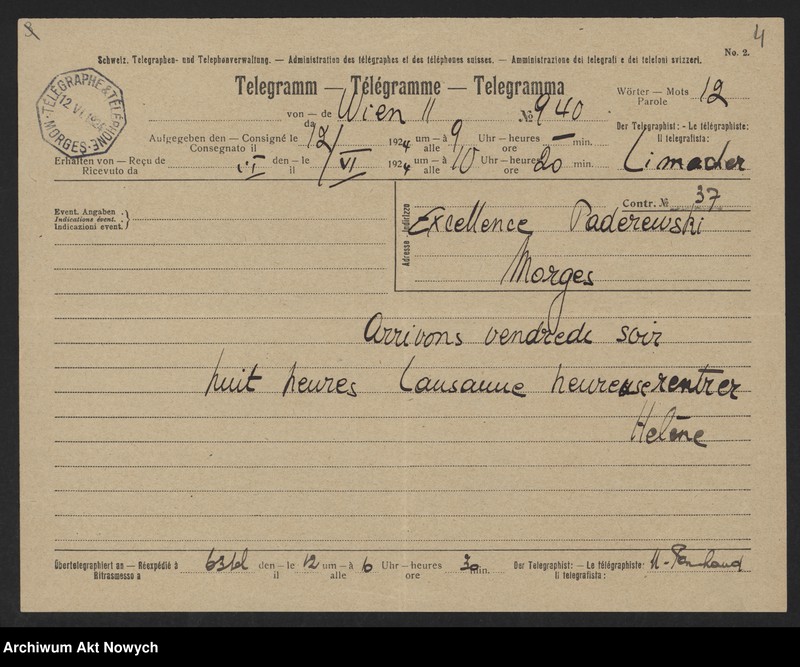 4
Schweiz. Telegraphen- und Telephonverwaltung. — Administration des télégraphes et des téléphones suisses. — Amministrazione dei telegrafi e dei telefoni svizzeri.
No. 2.
Telegramm — Télégramme — Telegramma
Wörter — Mots 12
Parole
TÉLÉGRAPHE & TÉLÉPHONE
MORGES
von — de Wien 11 № 940
da
Der Telegraphist: - Le télégraphiste:
Il telegrafista:
Aufgegeben den — Consigné le 12/VI 1924 um — à 9 Uhr — heures — min.
Consegnato il alle ore
Limacher
Erhalten von — Reçu de den — le VI 1924 um — à 10 Uhr — heures 20 min.
Ricevuto da il alle ore
Contr. № 37
Event. Angaben
Indications évent.
Indicazioni event.
Adresse - Indirizzo
Excellence Paderewski
Morges
Arrivons vendredi soir
huit heures Lausanne heureuse rentrer
Helène
Übertelegraphiert an — Réexpédié à den — le 12 um — à 6 Uhr — heures 30 min.
Ritrasmesso a il alle ore
Der Telegraphist: — Le télégraphiste:
Il telegrafista:
Archiwum Akt Nowych